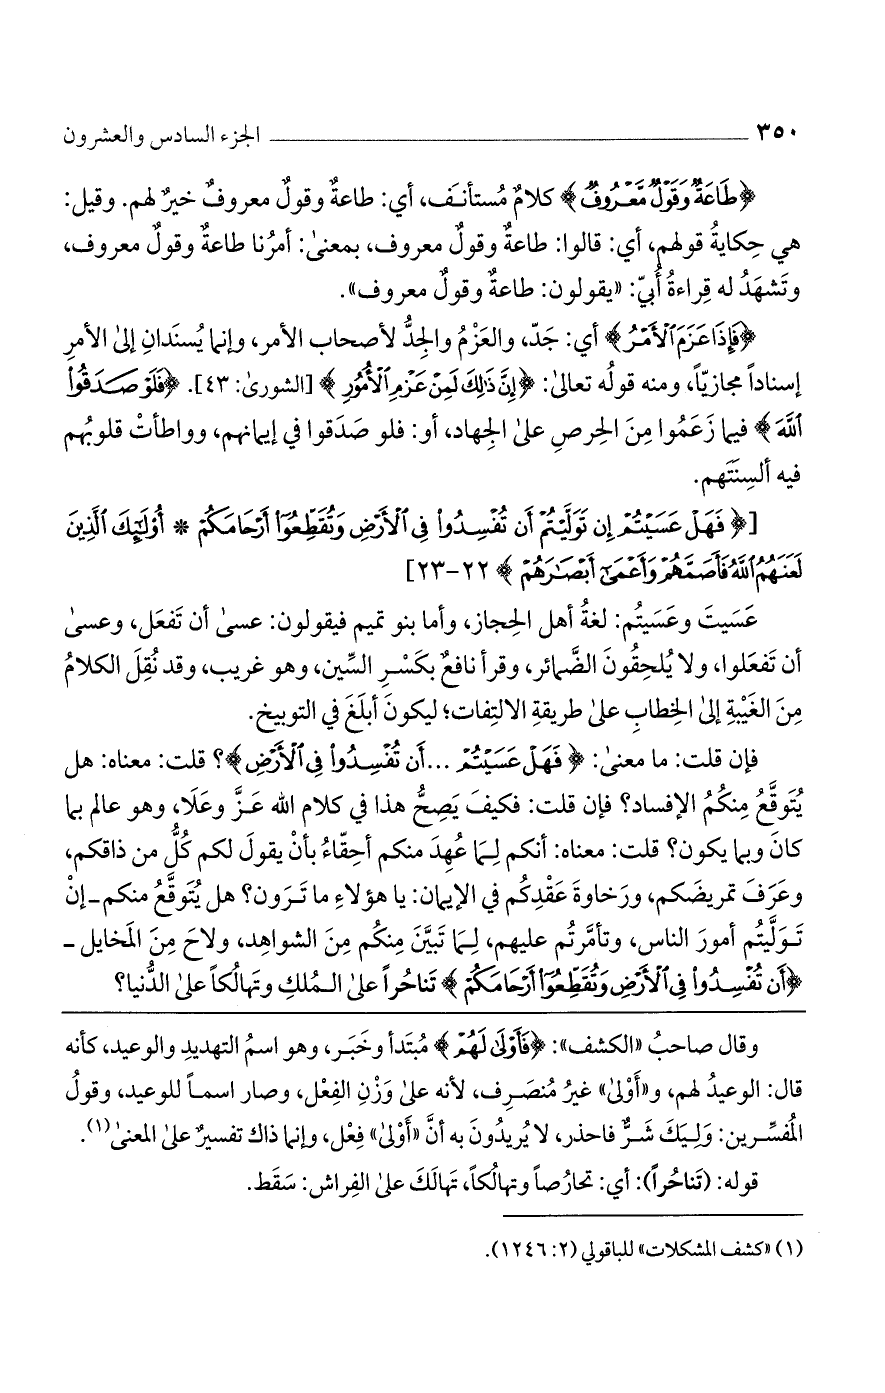 ٣٥٠ ــــــــــــــــــــــــــــ الجزء السادس والعشرون
﴿طَاعَةٌ وَقَوْلٌ مَّعْرُوفٌ﴾ كلامٌ مُستأنَف، أي: طاعةٌ وقولٌ معروفٌ خيرٌ لهم. وقيل:
هي حِكايةُ قولهم، أي: قالوا: طاعةٌ وقولٌ معروف، بمعنىٰ: أمرُنا طاعةٌ وقولٌ معروف،
وتَشهَدُ له قِراءةُ أُبيّ: «يقولون: طاعةٌ وقولٌ معروف».
﴿فَإِذَا عَزَمَ ٱلْأَمْرُ﴾ أي: جَدّ، والعَزْمُ والجِدُّ لأصحاب الأمر، وإنما يُسنَدانِ إلىٰ الأمرِ
إسناداً مجازيّاً، ومنه قولُه تعالىٰ: ﴿إِنَّ ذَٰلِكَ لَمِنْ عَزْمِ ٱلْأُمُورِ﴾ [الشورىٰ: ٤٣]. ﴿فَلَوْ صَدَقُواْ
ٱللَّهَ﴾ فيما زَعَمُوا مِنَ الحِرصِ علىٰ الجِهاد، أو: فلو صَدَقوا في إيمانهم، وواطأتْ قلوبُهم
فيه ألسِنَتَهم.
[﴿فَهَلْ عَسَيْتُمْ إِن تَوَلَّيْتُمْ أَن تُفْسِدُواْ فِى ٱلْأَرْضِ وَتُقَطِّعُوٓاْ أَرْحَامَكُمْ * أُوْلَـٰٓئِكَ ٱلَّذِينَ
لَعَنَهُمُ ٱللَّهُ فَأَصَمَّهُمْ وَأَعْمَىٰٓ أَبْصَـٰرَهُمْ﴾ ٢٢-٢٣]
عَسَيتَ وعَسَيتُم: لغةُ أهل الحِجاز، وأما بنو تميم فيقولون: عسىٰ أن تَفعَل، وعسىٰ
أن تَفعَلوا، ولا يُلحِقُونَ الضَّمائر، وقرأ نافعٌ بكَسْرِ السِّين، وهو غريب، وقد نُقِلَ الكلامُ
مِنَ الغَيْبةِ إلىٰ الخِطابِ علىٰ طريقةِ الالتِفات؛ ليكونَ أبلَغَ في التوبيخ.
فإن قلت: ما معنىٰ: ﴿فَهَلْ عَسَيْتُمْ ... أَن تُفْسِدُواْ فِى ٱلْأَرْضِ﴾؟ قلت: معناه: هل
يُتَوقَّعُ مِنكُمُ الإفساد؟ فإن قلت: فكيفَ يَصِحُّ هذا في كلام الله عَزَّ وعَلَا، وهو عالم بما
كانَ وبما يكون؟ قلت: معناه: أنكم لِمَا عُهِدَ منكم أحِقّاءُ بأنْ يقولَ لكم كُلُّ من ذاقكم،
وعَرَفَ تمريضَكم، ورَخاوةَ عَقْدِكُم في الإيمان: يا هؤلاءِ ما تَرَون؟ هل يُتَوقَّعُ منكم ـ إنْ
تَوَلَّيتُم أمورَ الناس، وتأمَّرتُم عليهم، لِمَا تَبيَّنَ مِنكُم مِنَ الشواهِد، ولاحَ مِنَ المَخايل ـ
﴿أَن تُفْسِدُواْ فِى ٱلْأَرْضِ وَتُقَطِّعُوٓاْ أَرْحَامَكُمْ﴾ تَناحُراً علىٰ المُلكِ وتَهالُكاً علىٰ الدُّنيا؟
وقال صاحبُ «الكشف»: ﴿فَأَوْلَىٰ لَهُمْ﴾ مُبتَدأ وخَبَر، وهو اسمُ التهديدِ والوعيد، كأنه
قال: الوعيدُ لهم، و«أَوْلىٰ» غيرُ مُنصَرِف، لأنه علىٰ وَزْنِ الفِعْل، وصار اسماً للوعيد، وقولُ
المُفسِّرين: وَلِيَكَ شَرٌّ فاحذر، لا يُريدُونَ به أنَّ «أَوْلىٰ» فِعْل، وإنما ذاك تفسيرٌ علىٰ المعنىٰ(١).
قوله: (تَناحُراً): أي: تحارُصاً وتهالُكاً، تَهالَكَ علىٰ الفِراش: سَقَط.
(١) «كشف المشكلات» للباقولي (٢: ١٢٤٦).